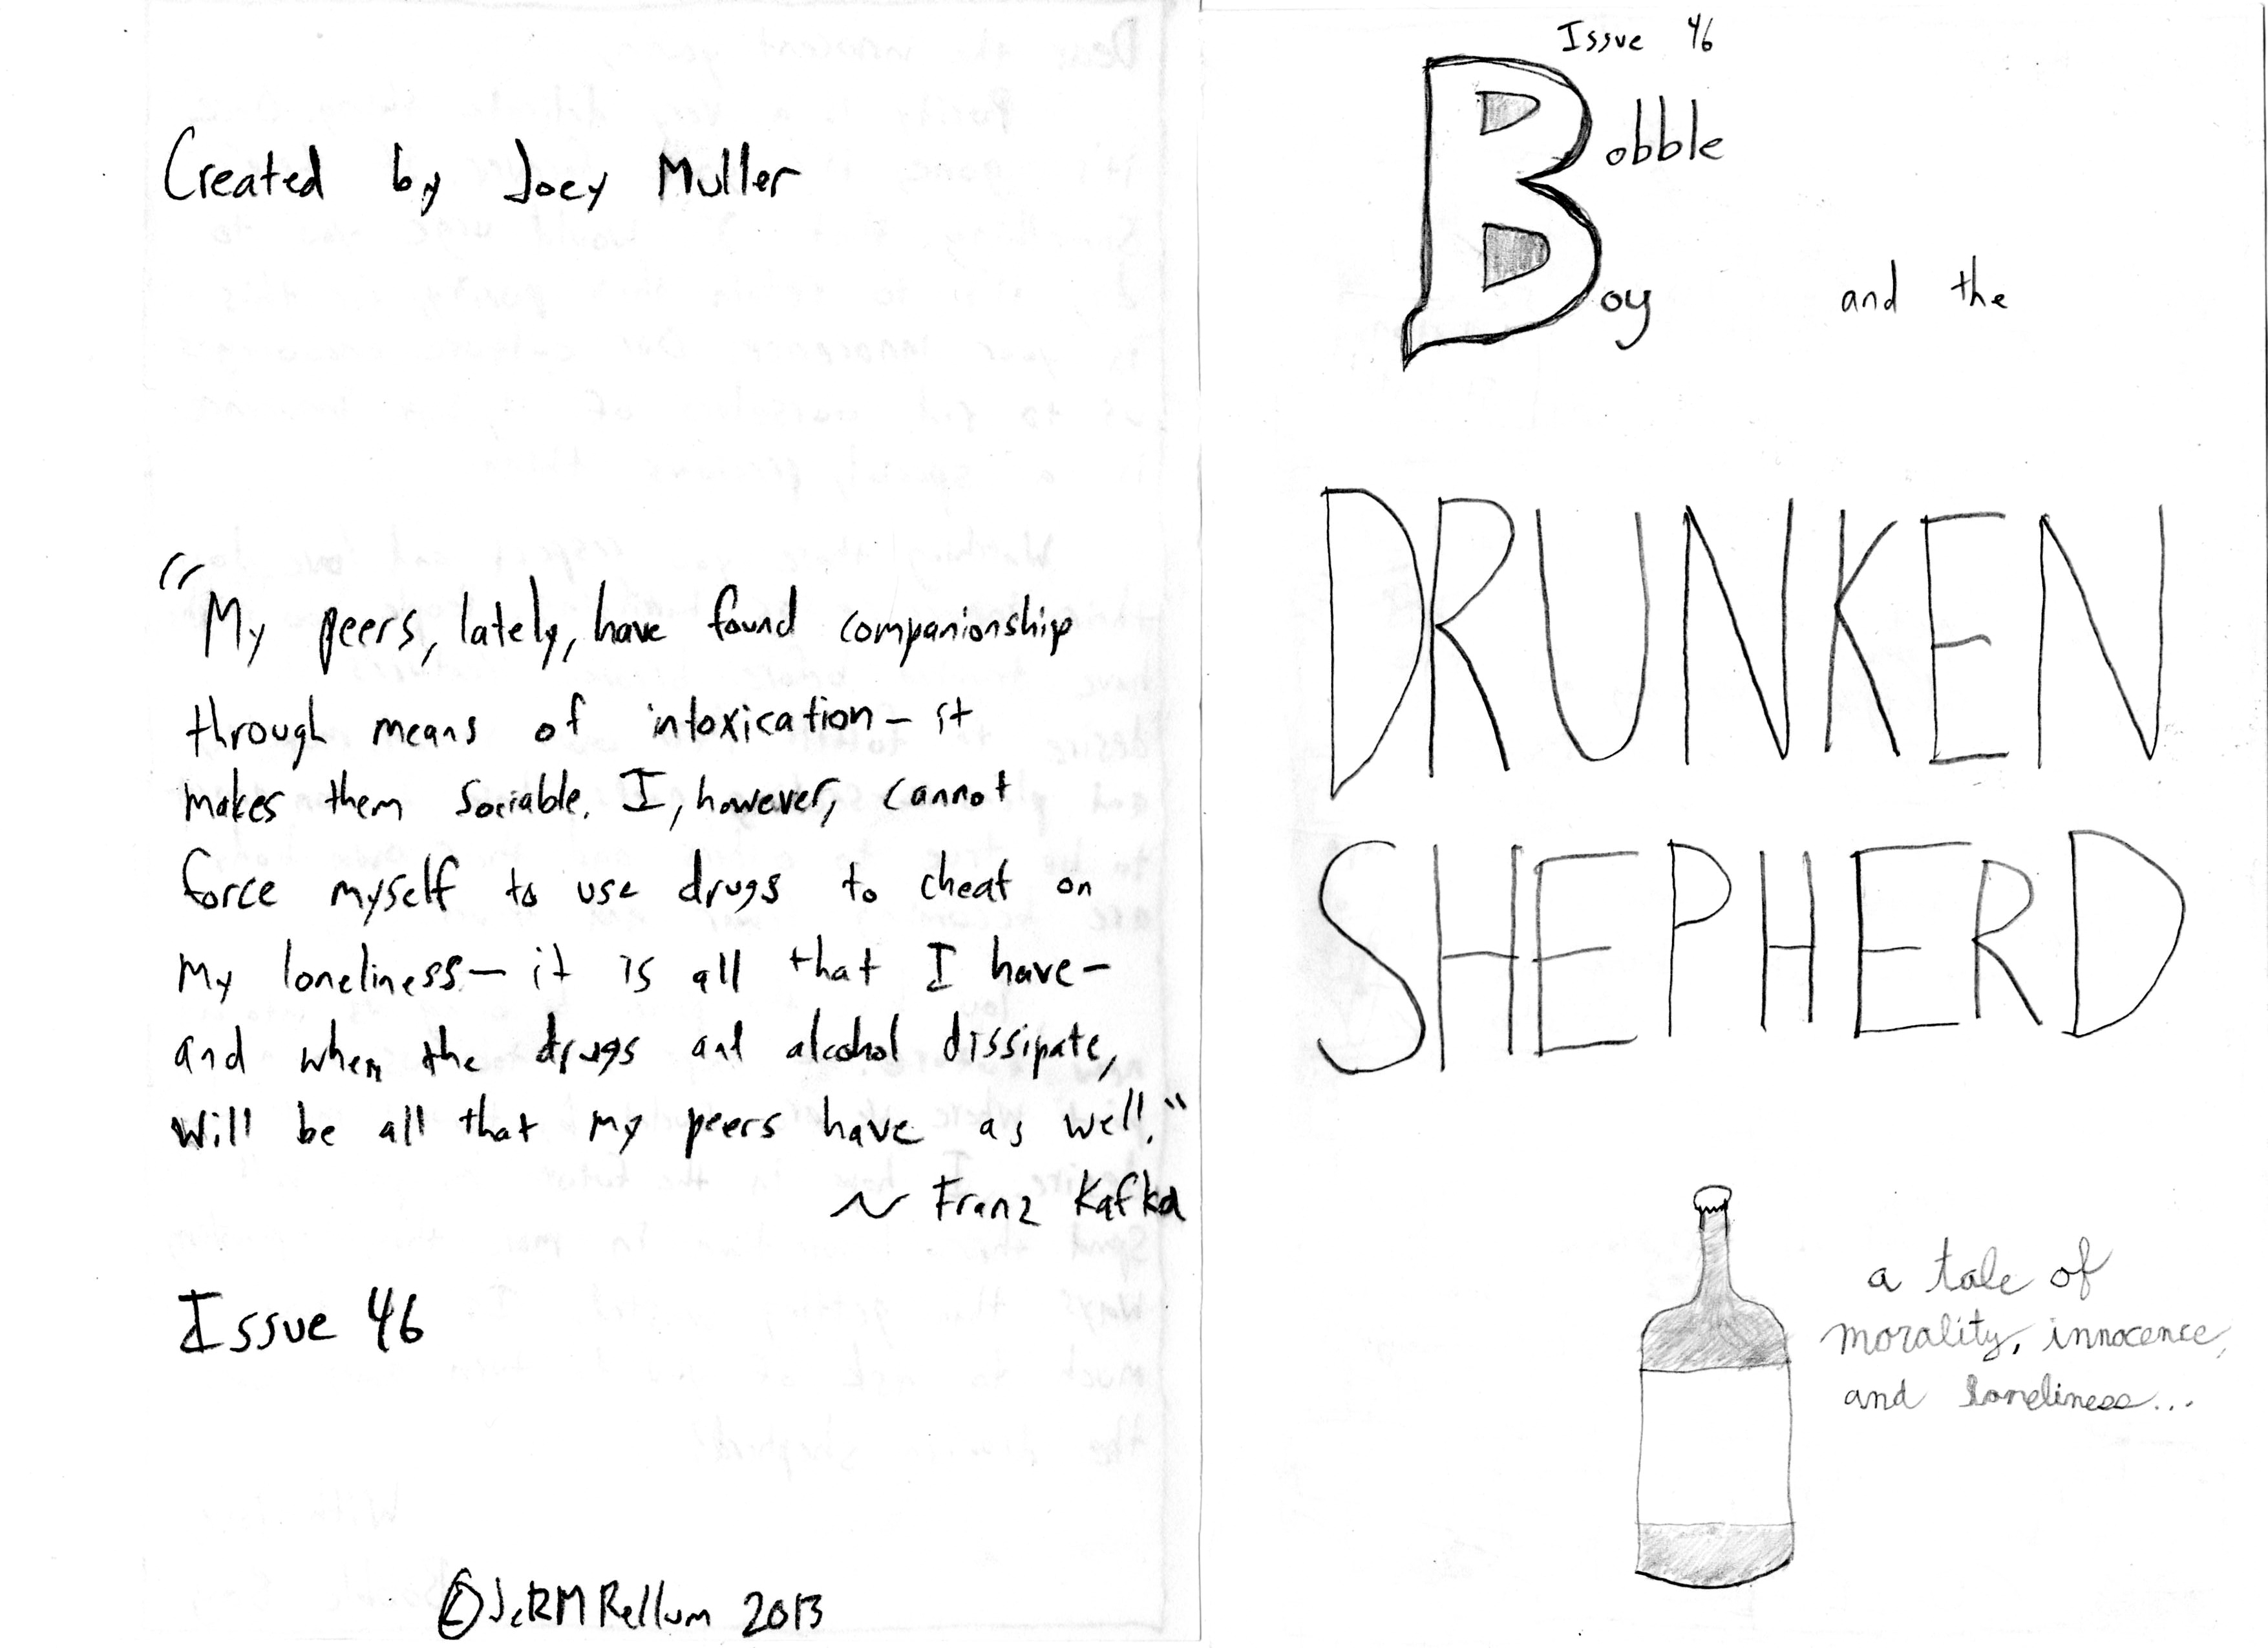 Created by Joey Muller
"My peers, lately, have found companionship
through means of intoxication – it
makes them sociable. I, however, cannot
force myself to use drugs to cheat on
my loneliness – it is all that I have –
and when the drugs and alcohol dissipate,
will be all that my peers have as well."
~ Franz Kafka
Issue 46
© JeRM Rellum 2013
Issue 46
Bobble
Boy and the
DRUNKEN
SHEPHERD
a tale of
morality, innocence,
and loneliness...